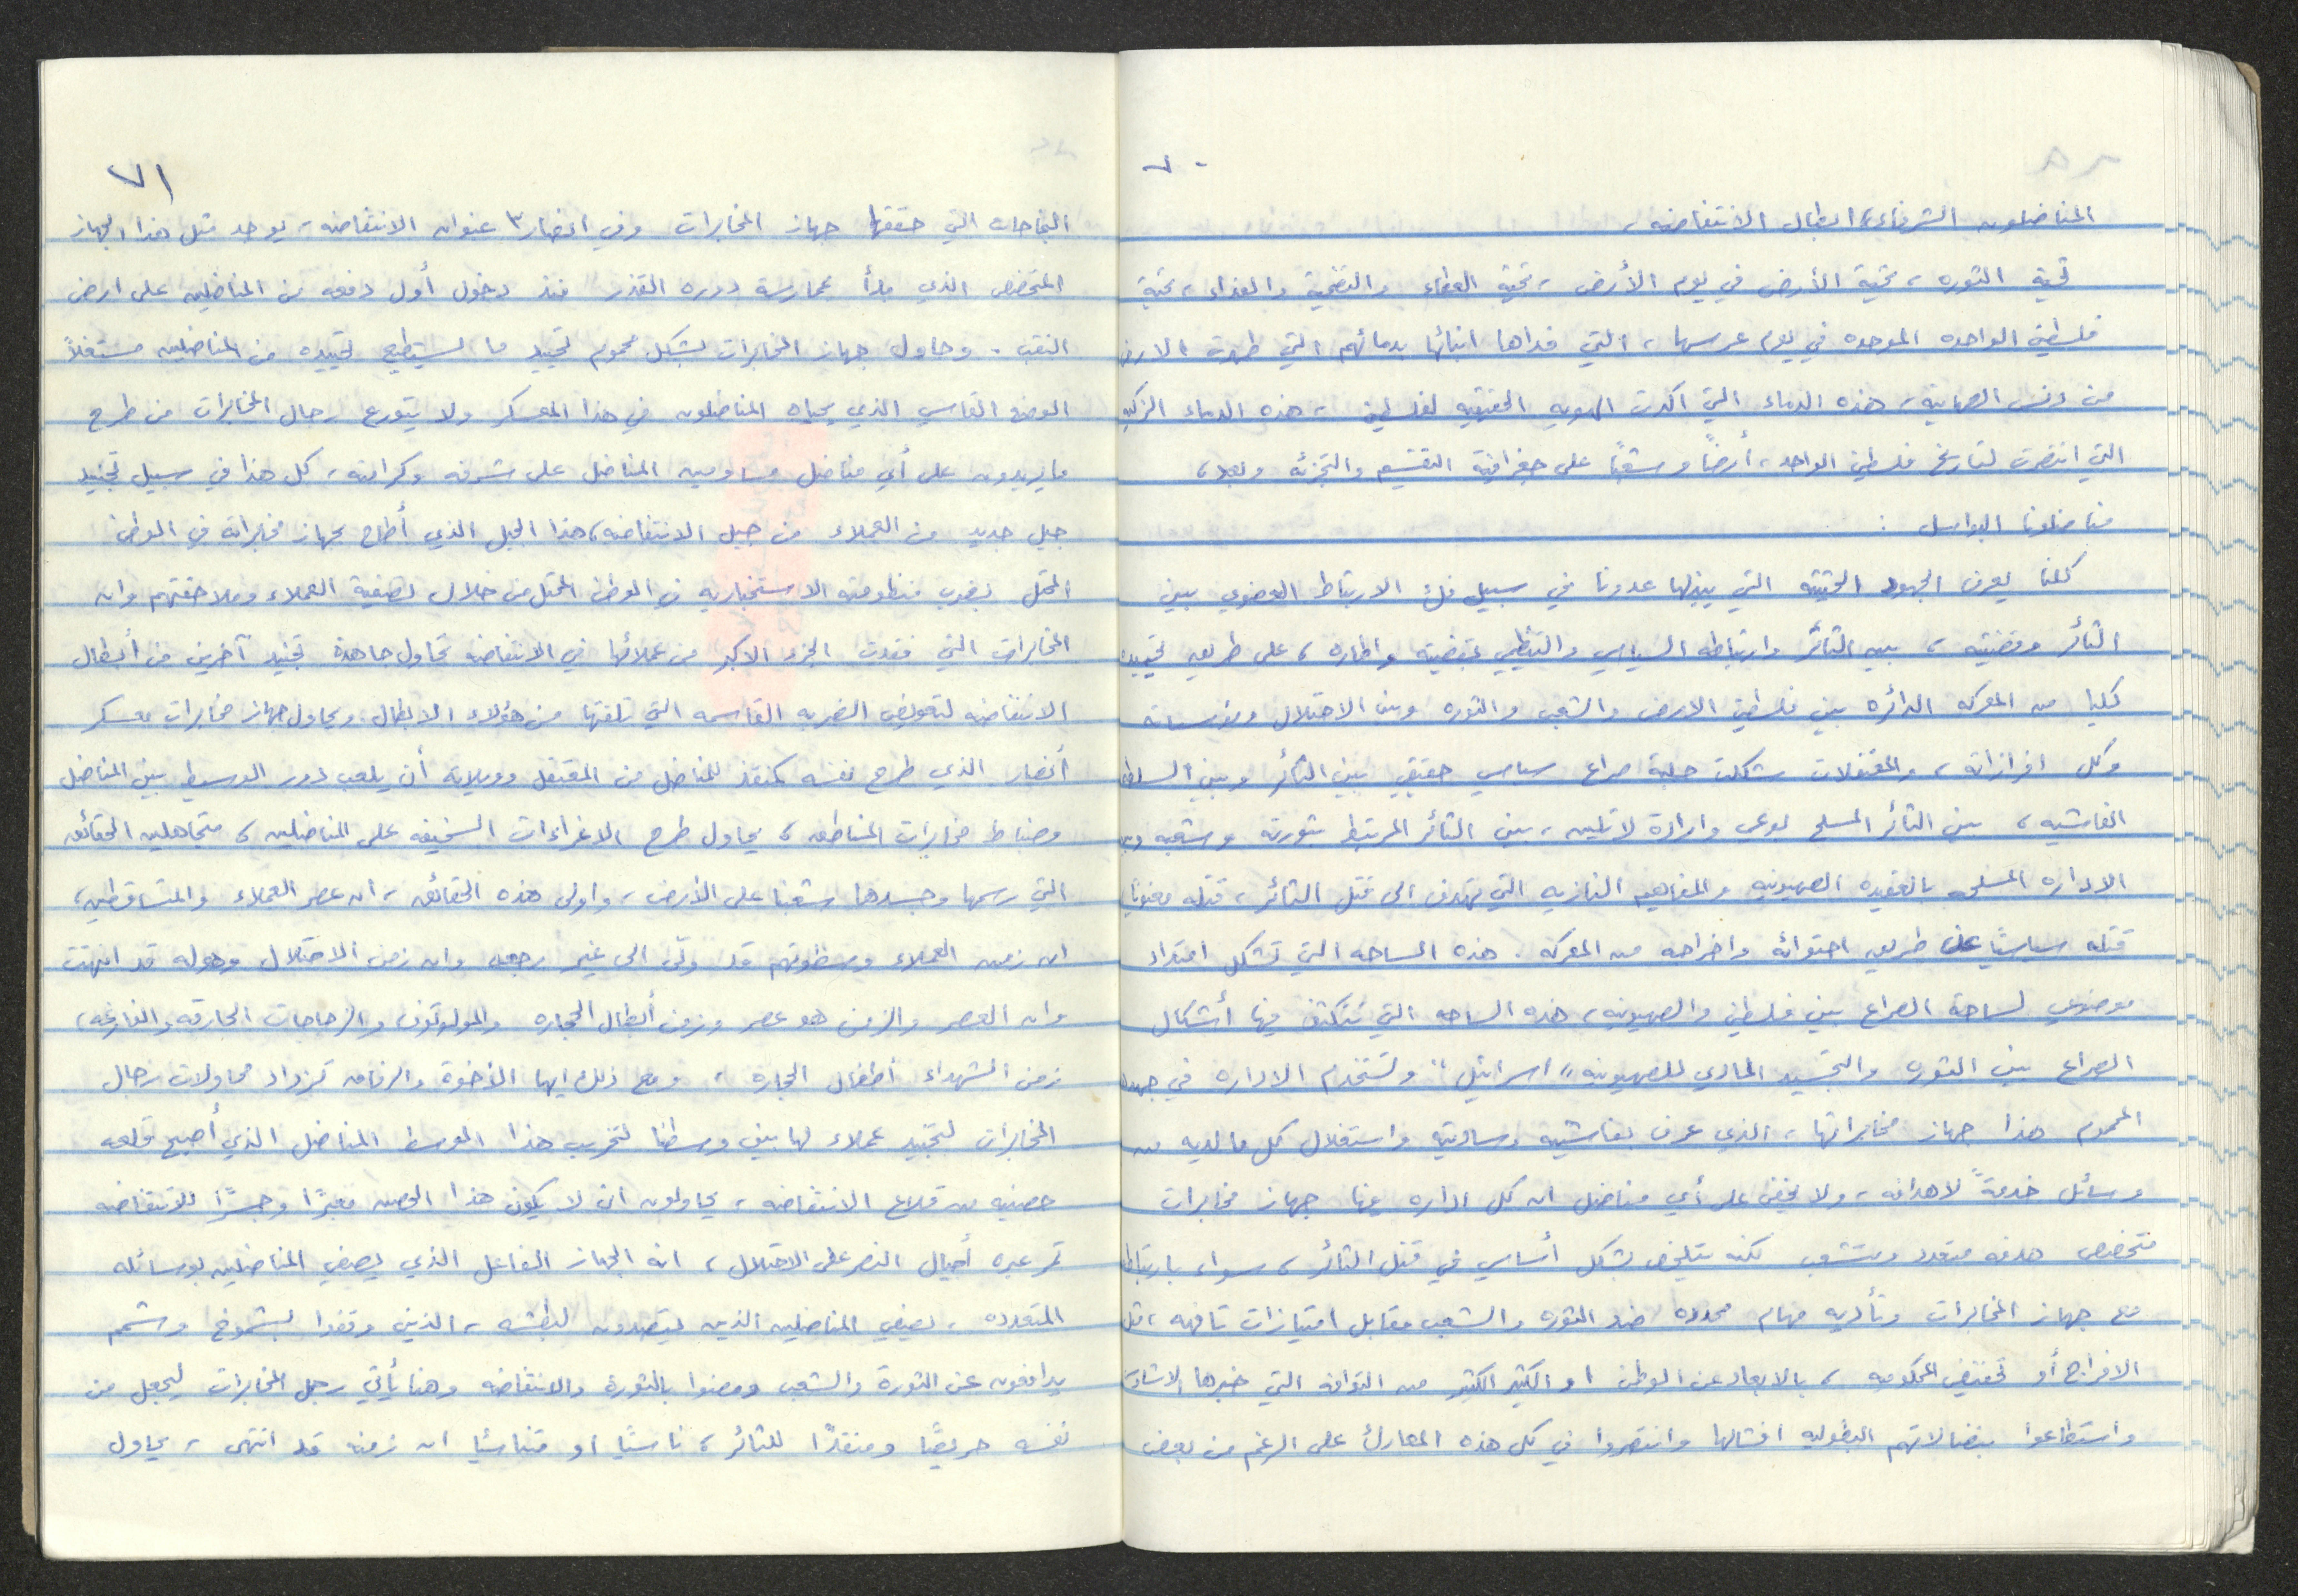 ٧٠
المناضلون الشرفاء، ابطال الانتفاضه،
تحية الثوره، تحية الأرض في يوم الأرض، تحية العطاء والتضحية والفداء، تحية
فلسطين الواحده الموحده في يوم عرسها، التي فداها ابنائها بدمائهم التي طهرت الارض
من دنس الصهاينه، هذه الدماء التي اكدت الهويه الحقيقيه لفلسطين، هذه الدماء الزكيه
التي انتصرت لتاريخ فلسطين الواحد، أرضاً وشعباً على جغرافية التقسيم والتجزئه وبعد،
مناضلونا البواسل :
كلنا يعرف الجهود الحثيثه التي يبذلها عدونا في سبيل فك الارتباط العضوي بين
الثائر وقضيته، بين الثائر وارتباطه السياسي والتنظيمي بقضيته واطاره، على طريق تحييده
كليا من المعركه الدائره بين فلسطين الارض والشعب والثوره وبين الاحتلال ومؤسساته
وكل افرازاته، والمعتقلات شكلت حلبة صراع سياسي حقيقي بين الثائر وبين السلطه
الفاشيه، بين الثائر المسلح بوعي وارادة لا تلين، بين الثائر المرتبط بثورته وشعبه وبين
الاداره المسلحه بالعقيده الصهيونيه والمفاهيم النازيه التي تهدف الى قتل الثائر، قتله معنوياً
قتله سياسياً عن طريق احتوائه واخراجه من المعركه. هذه الساحه التي تشكل امتداد
موضوعي لساحة الصراع بين فلسطين والصهيونيه، هذه الساحه التي تتكثف فيها أشكال
الصراع بين الثوره والتجسيد المادي للصهيونيه "اسرائيل" وتستخدم الاداره في جهدها
المحموم هذا جهاز مخابراتها، الذي عرف بفاشيته وساديته واستغلال كل ما لديه من
وسائل خدمةً لاهدافه، ولا يخفى على أي مناضل ان كل اداره فيها جهاز مخابرات
متخصص هدفه متعدد ومتشعب لكنه يتلخص بشكل أساسي في قتل الثائر، سواء بارتباطه
مع جهاز المخابرات وتأديه مهام محدده ضد الثوره والشعب مقابل امتيازات تافهه، مثل
الافراج أو تخفيض المحكوميه، بالابعاد عن الوطن او الكثير الكثير من التوافه التي خبرها
واستطاعوا بنضالاتهم البطوليه افشالها وانتصروا في كل هذه المعارك على الرغم من بعض
٧١
النجاحات التي حققها جهاز المخابرات وفي انصار ٣ عنوان الانتفاضه، يوجد مثل هذا الجهاز
المتخصص الذي بدأ بممارسة دوره القذر منذ دخول أول دفعه من المناضلين على ارض
النقب. وحاول جهاز المخابرات بشكل محموم تحييد ما يستطيع تحييده من المناضلين مستغلاً
الوضع القاسي الذي يحياه المناضلون في هذا المعسكر ولا يتورع رجال المخابرات من طرح
ما يريدون على أي مناضل مساومين المناضل على شرفه وكرامته، كل هذا في سبيل تجنيد
جيل جديد من العملاء من جيل الانتفاضه، هذا الجيل الذي أطاح بجهاز مخابراته في الوطن
المحتل بضرب منظومته الاستخباريه في الوطن المحتل من خلال تصفية العملاء وملاحقتهم وان
المخابرات التي فقدت الجزء الاكبر من عملائها في الانتفاضه تحاول جاهدة تجنيد آخرين من أبطال
الانتفاضه لتعويض الضربه القاسمه التي تلقتها من هؤلاء الابطال. ويحاول جهاز مخابرات معسكر
أنصار الذي طرح نفسه كمنقذ للمناضل من المعتقل وويلاته أن يلعب دور الوسيط بين المناضل
وضباط مخابرات المناطق، يحاول طرح الاغراءات السخيفه على المناضلين، متجاهلين الحقائق
التي رسمها وجسدها شعبنا على الأرض، واولى هذه الحقائق، ان عصر العملاء والمتساقطين،
ان زمن العملاء وسطوتهم قد ولّى الى غير رجعه وان زمن الاحتلال وهوله قد انتهت
وان العصر والزمن هو عصر وزمن أبطال الحجاره والمولوتوف والزجاجات الحارقه والفارغه،
زمن الشهداء أطفال الحجاره، ومع ذلك ايها الأخوة والرفاق تزداد محاولات رجال
المخابرات لتجنيد عملاء لها بين وسطنا لتخريب هذا الوسط المناضل الذي أصبح قلعه
حصينه من قلاع الانتفاضه، يحاولون ان لا يكون هذا الحصن معبرًا وجسرًا للانتفاضه
تمر عبره أجيال النصر على الاحتلال، انه الجهاز الفاعل الذي يصفي المناضلين بوسائله
المتعدده، يصفي المناضلين الذين يتصدون لبطشه، الذين وقفوا بشموخ وشمم
يدافعون عن الثورة والشعب ومضوا بالثورة والانتفاضه وهنا يأتي رجل المخابرات ليجعل من
نفسه حريصًا ومنقذًا للثائر، ناسيًا او متناسيًا ان زمنه قد انتهى، يحاول